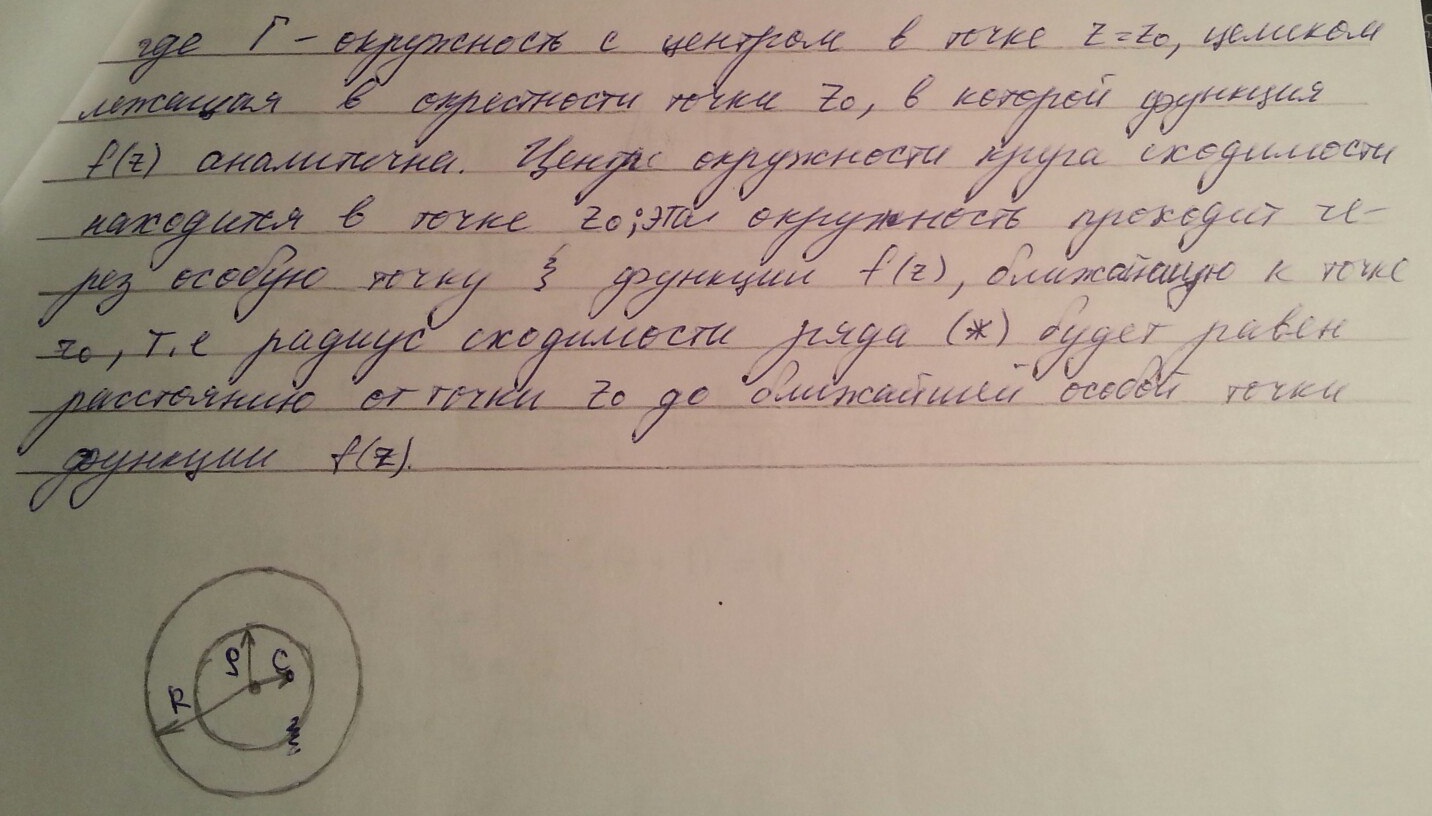 где Г - окружность с центром в точке z=z₀, целиком
лежащая в окрестности точки z₀, в которой функция
f(z) аналитична. Центр окружности круга сходимости
находится в точке z₀; эта окружность проходит че-
рез особую точку ξ функции f(z), ближайшую к точке
z₀, т.е радиус сходимости ряда (*) будет равен
расстоянию от точки z₀ до ближайшей особой точки
функции f(z).
ρ
R
ξ